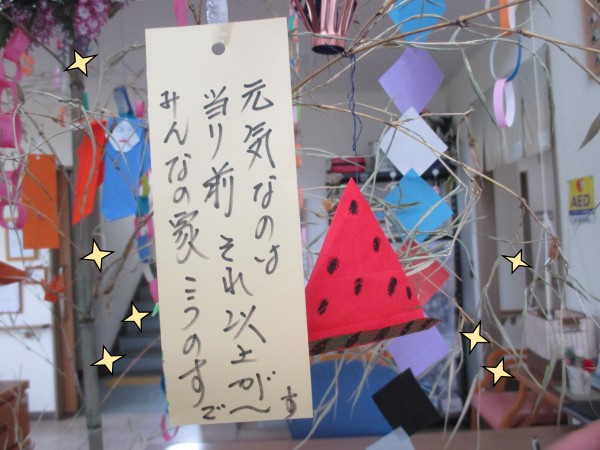 元気なのは
当り前 それ以上が
みんなの家 こうのす
で〜す
AED